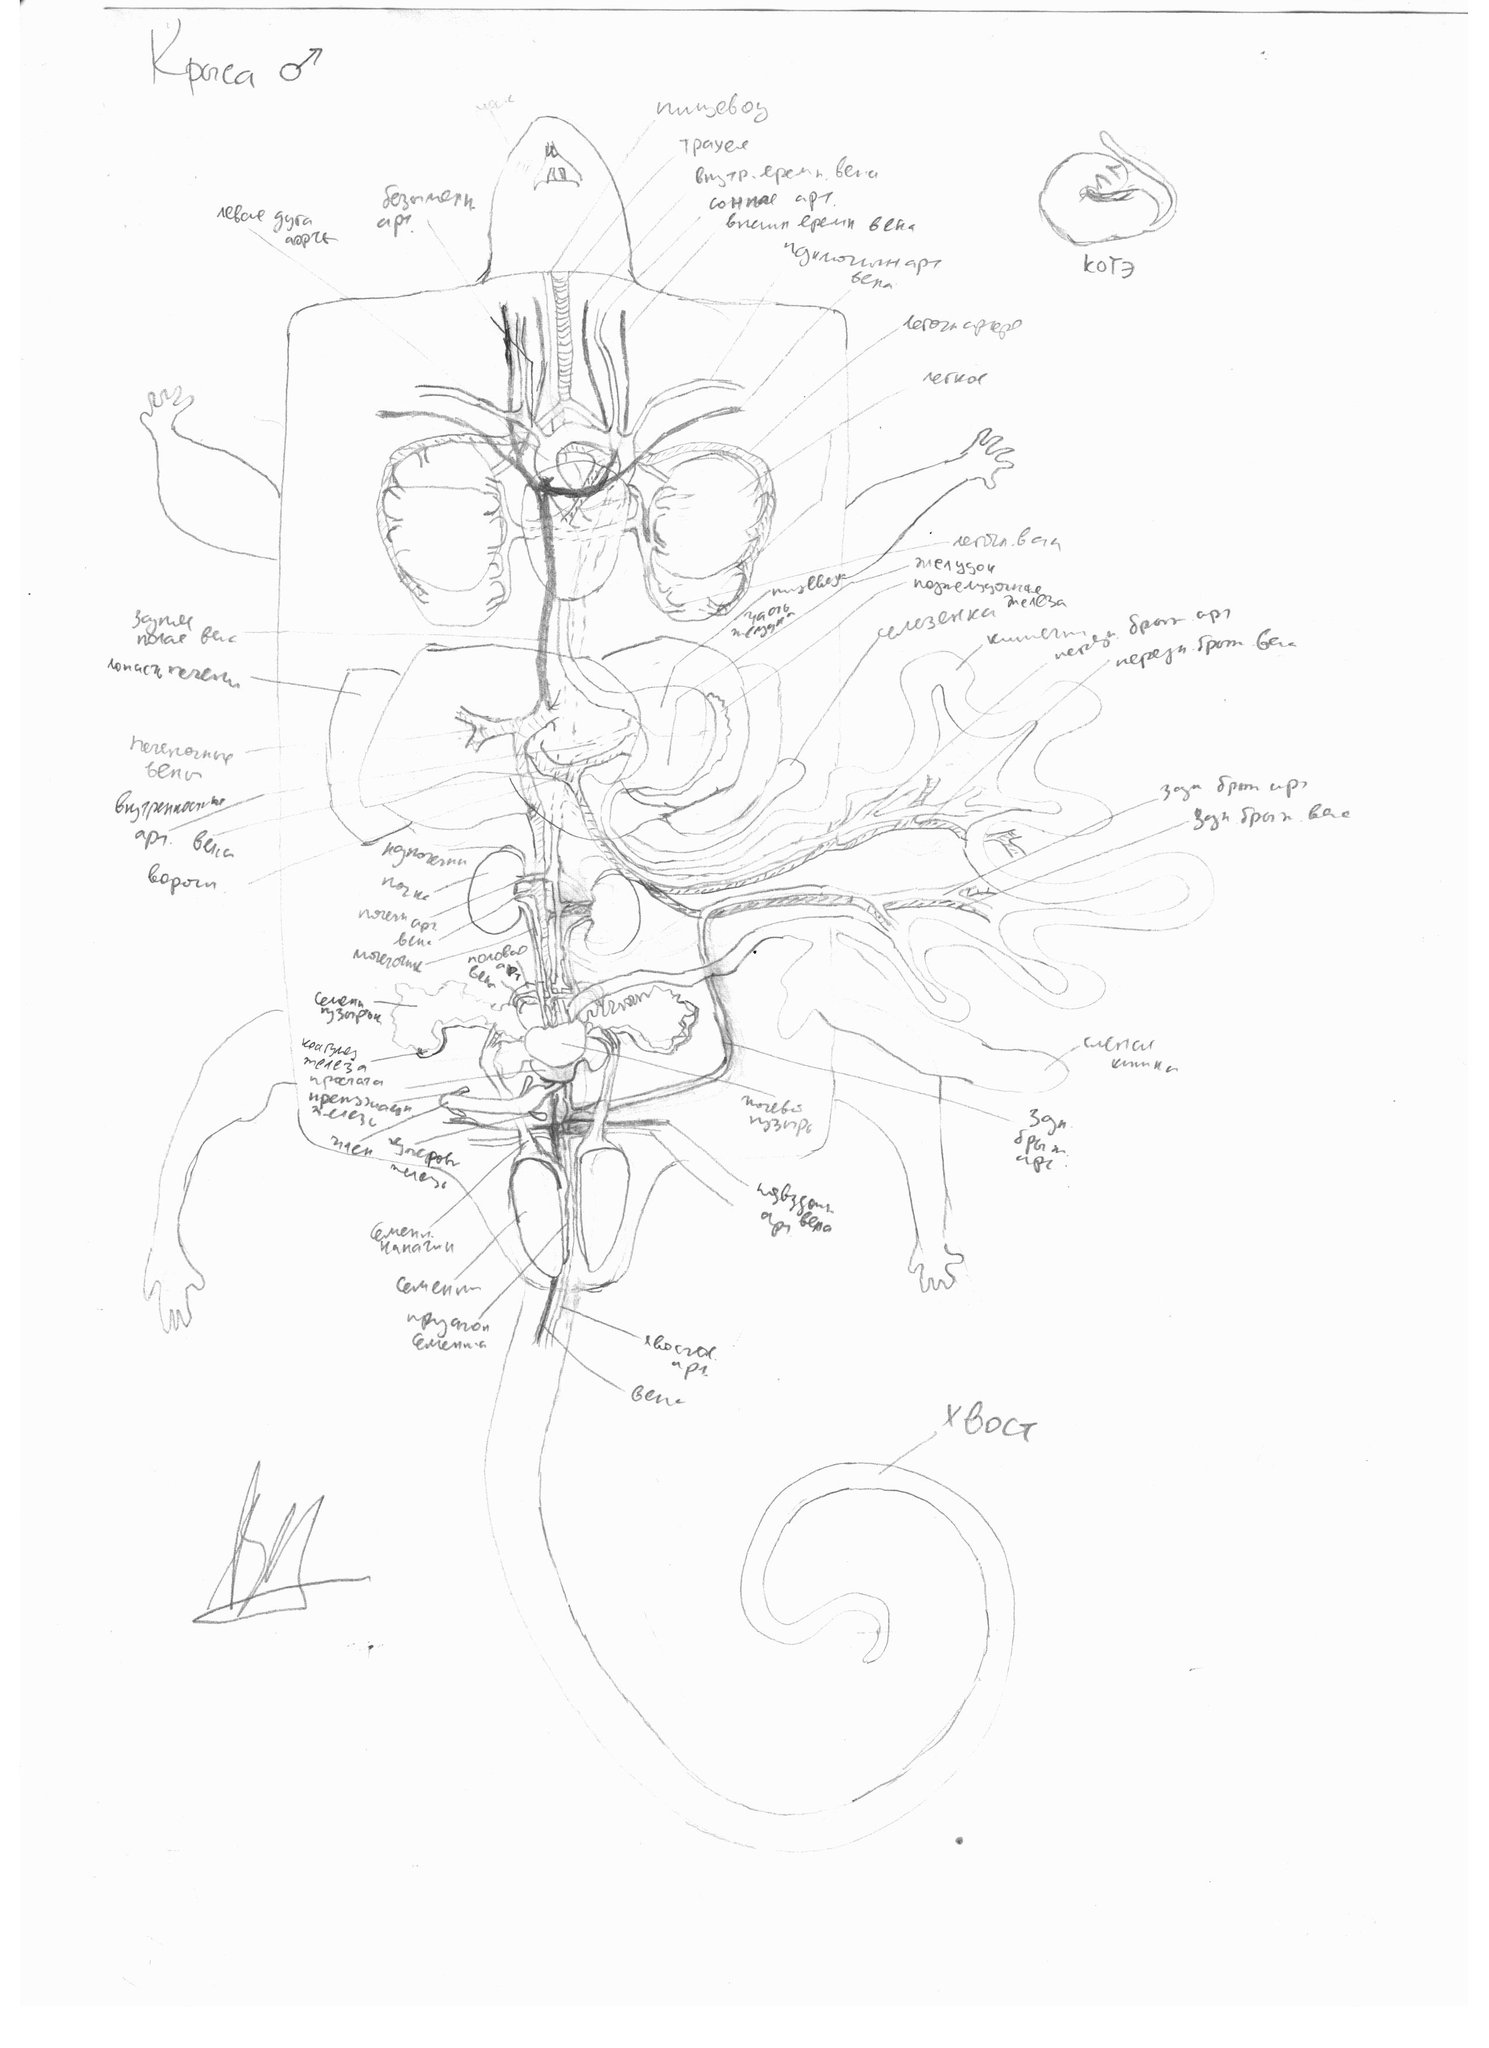 Крыса ♂
пищевод
трахея
внутр. яремн. вена
сонные арт.
внешн яремн вена
безымянн.
арт.
левая дуга
аорты
подключичн арт
вена
КОТЭ
легочн артер
легкое
легочн. вена
желудок
поджелудочная
железа
селезенка
пищевод
часть
желудка
кишечн
передн. брыж арт
передн. брыж. вена
задняя
полая вена
лопасть печени
печеночные
вены
внутренностные
арт. вена
ворот.
задн брыж арт
задн брыж. вена
надпочечн
почка
почечн
арт.
вена
мочеточник
половые
арт
вена
семенн
пузырьк
коагулез
железа
простата
препуциал
железа
член
куперова
железа
мочевой
пузырь
слепая
кишка
задн.
брыж.
арт.
подвздошн
арт вена
семенн.
канатик
семенник
придаток
семенника
хвостов.
арт.
вена
хвост